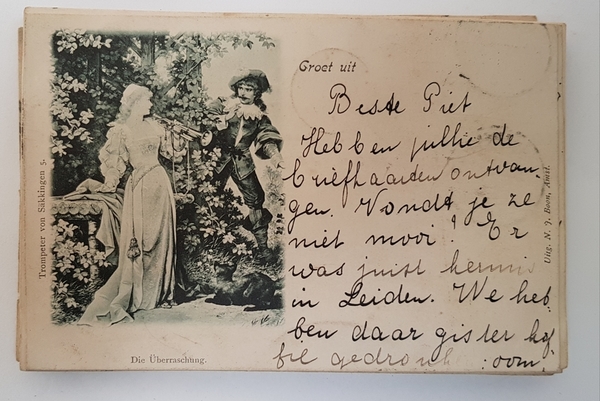 Groet uit
Beste Piet
Hebben jullie de
briefkaarten ontvan-
gen. Vondt je ze
niet mooi! Er
was juist kermis
in Leiden. We heb-
ben daar gister kof-
fie gedronk oom,
Trompeter von Säkkingen 5.
Die Überraschung.
Uitg. N. J. Boon, Amst.